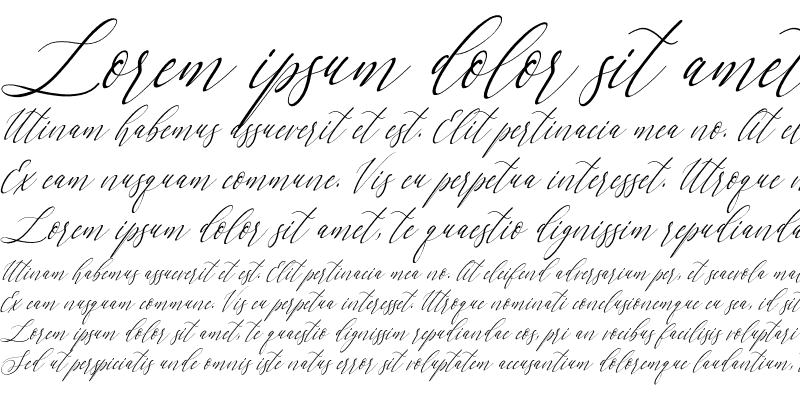 Lorem ipsum dolor sit amet
Utinam habemus assueverit et est. Elit pertinacia mea no. At el
Ex eam nusquam commune. Vis eu perpetua interesset. Utroque n
Lorem ipsum dolor sit amet, te quaestio dignissim repudianda
Utinam habemus assueverit et est. Elit pertinacia mea no. At eleifend adversarium per, et scaevola mai
Ex eam nusquam commune. Vis eu perpetua interesset. Utroque nominati conclusionemque eu sea, id sit
Lorem ipsum dolor sit amet, te quaestio dignissim repudiandae eos, pri an vocibus facilisis voluptari
Sed ut perspiciatis unde omnis iste natus error sit voluptatem accusantium doloremque laudantium,